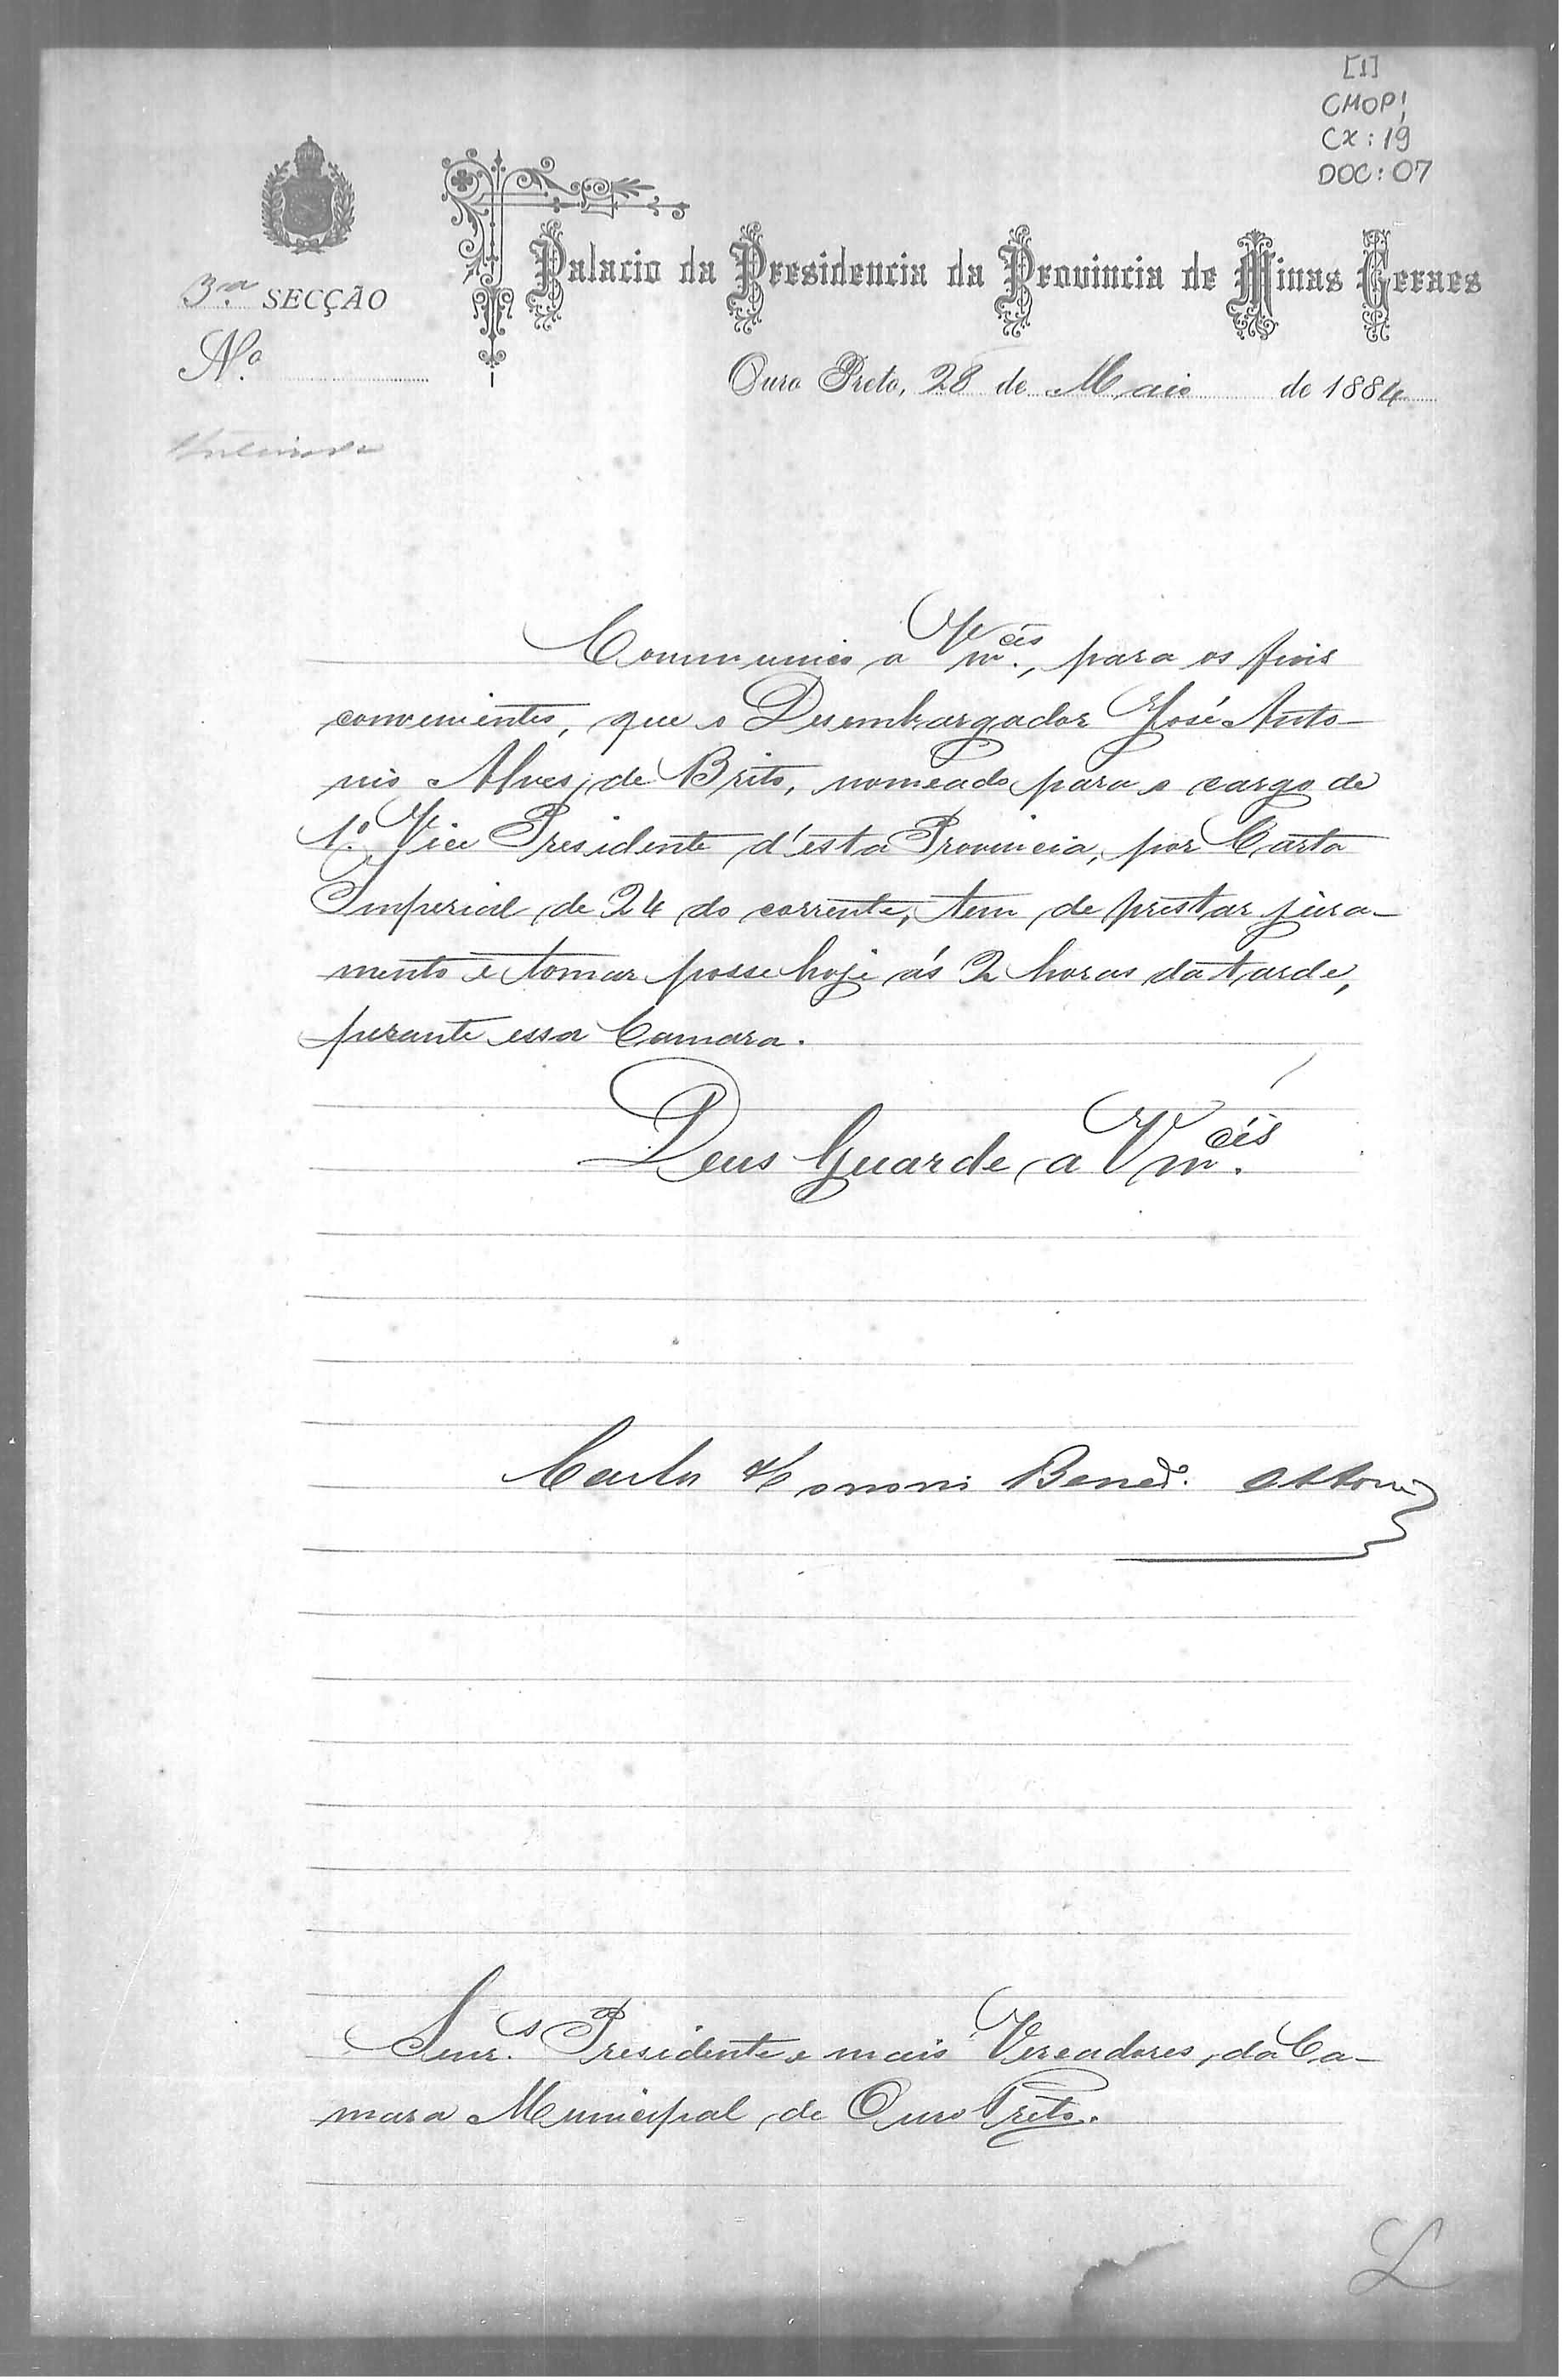 [1]
CMOP!
CX: 19
DOC: 07
3.ª SECÇÃO
N.º
Palacio da Presidencia da Provincia de Minas Geraes
Ouro Preto, 28 de Maio de 1884
Communico a Vm.cês, para os fins
convenientes, que o Desembargador José Anto-
nio Alves de Brito, nomeado para o cargo de
1.º Vice Presidente d'esta Provincia, por Carta
Imperial de 24 do corrente, tem de prestar jura-
mento e tomar posse hoje ás 2 horas da tarde,
perante essa Camara.
Deus Guarde a Vm.cês
Carlos Honorio Bened.º Ottoni
Snr.s Presidente e mais Vereadores da Ca-
mara Municipal de Ouro Preto.